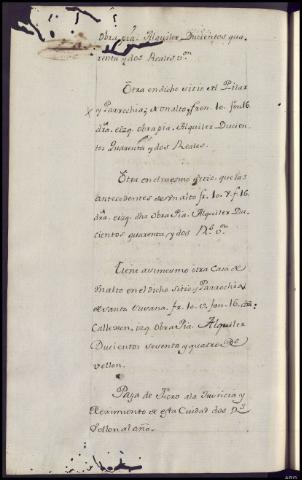 obra pia. Alquiler Ducientos qua
renta y dos Reales vn
Otra en dicho sitio del Pilar
y Parrochia, de vn alto, fron. 10. fon. 16
dra. e izq. obra pia. Alquiler Ducien
tos Quarenta y dos Reales.
Otra en el mesmo sitio, que las
antecedentes de vn alto fr. 10. y f. 16
dra. e izq. dha obra Pia. Alquiler Du
cientos quarenta, y dos Rs. vn
Tiene assimesmo otra Casa de
vn alto en el dicho sitio y Parrochia
de Santa Susana. fr. 10. vs. fon. 16.
Callexon, izq. obra Pia. Alquiler
Ducientos sesenta y quatro
vellon.
Paga de Foro a la Justicia y
Reximiento de esta Ciudad dos Rs
Vellon al año.